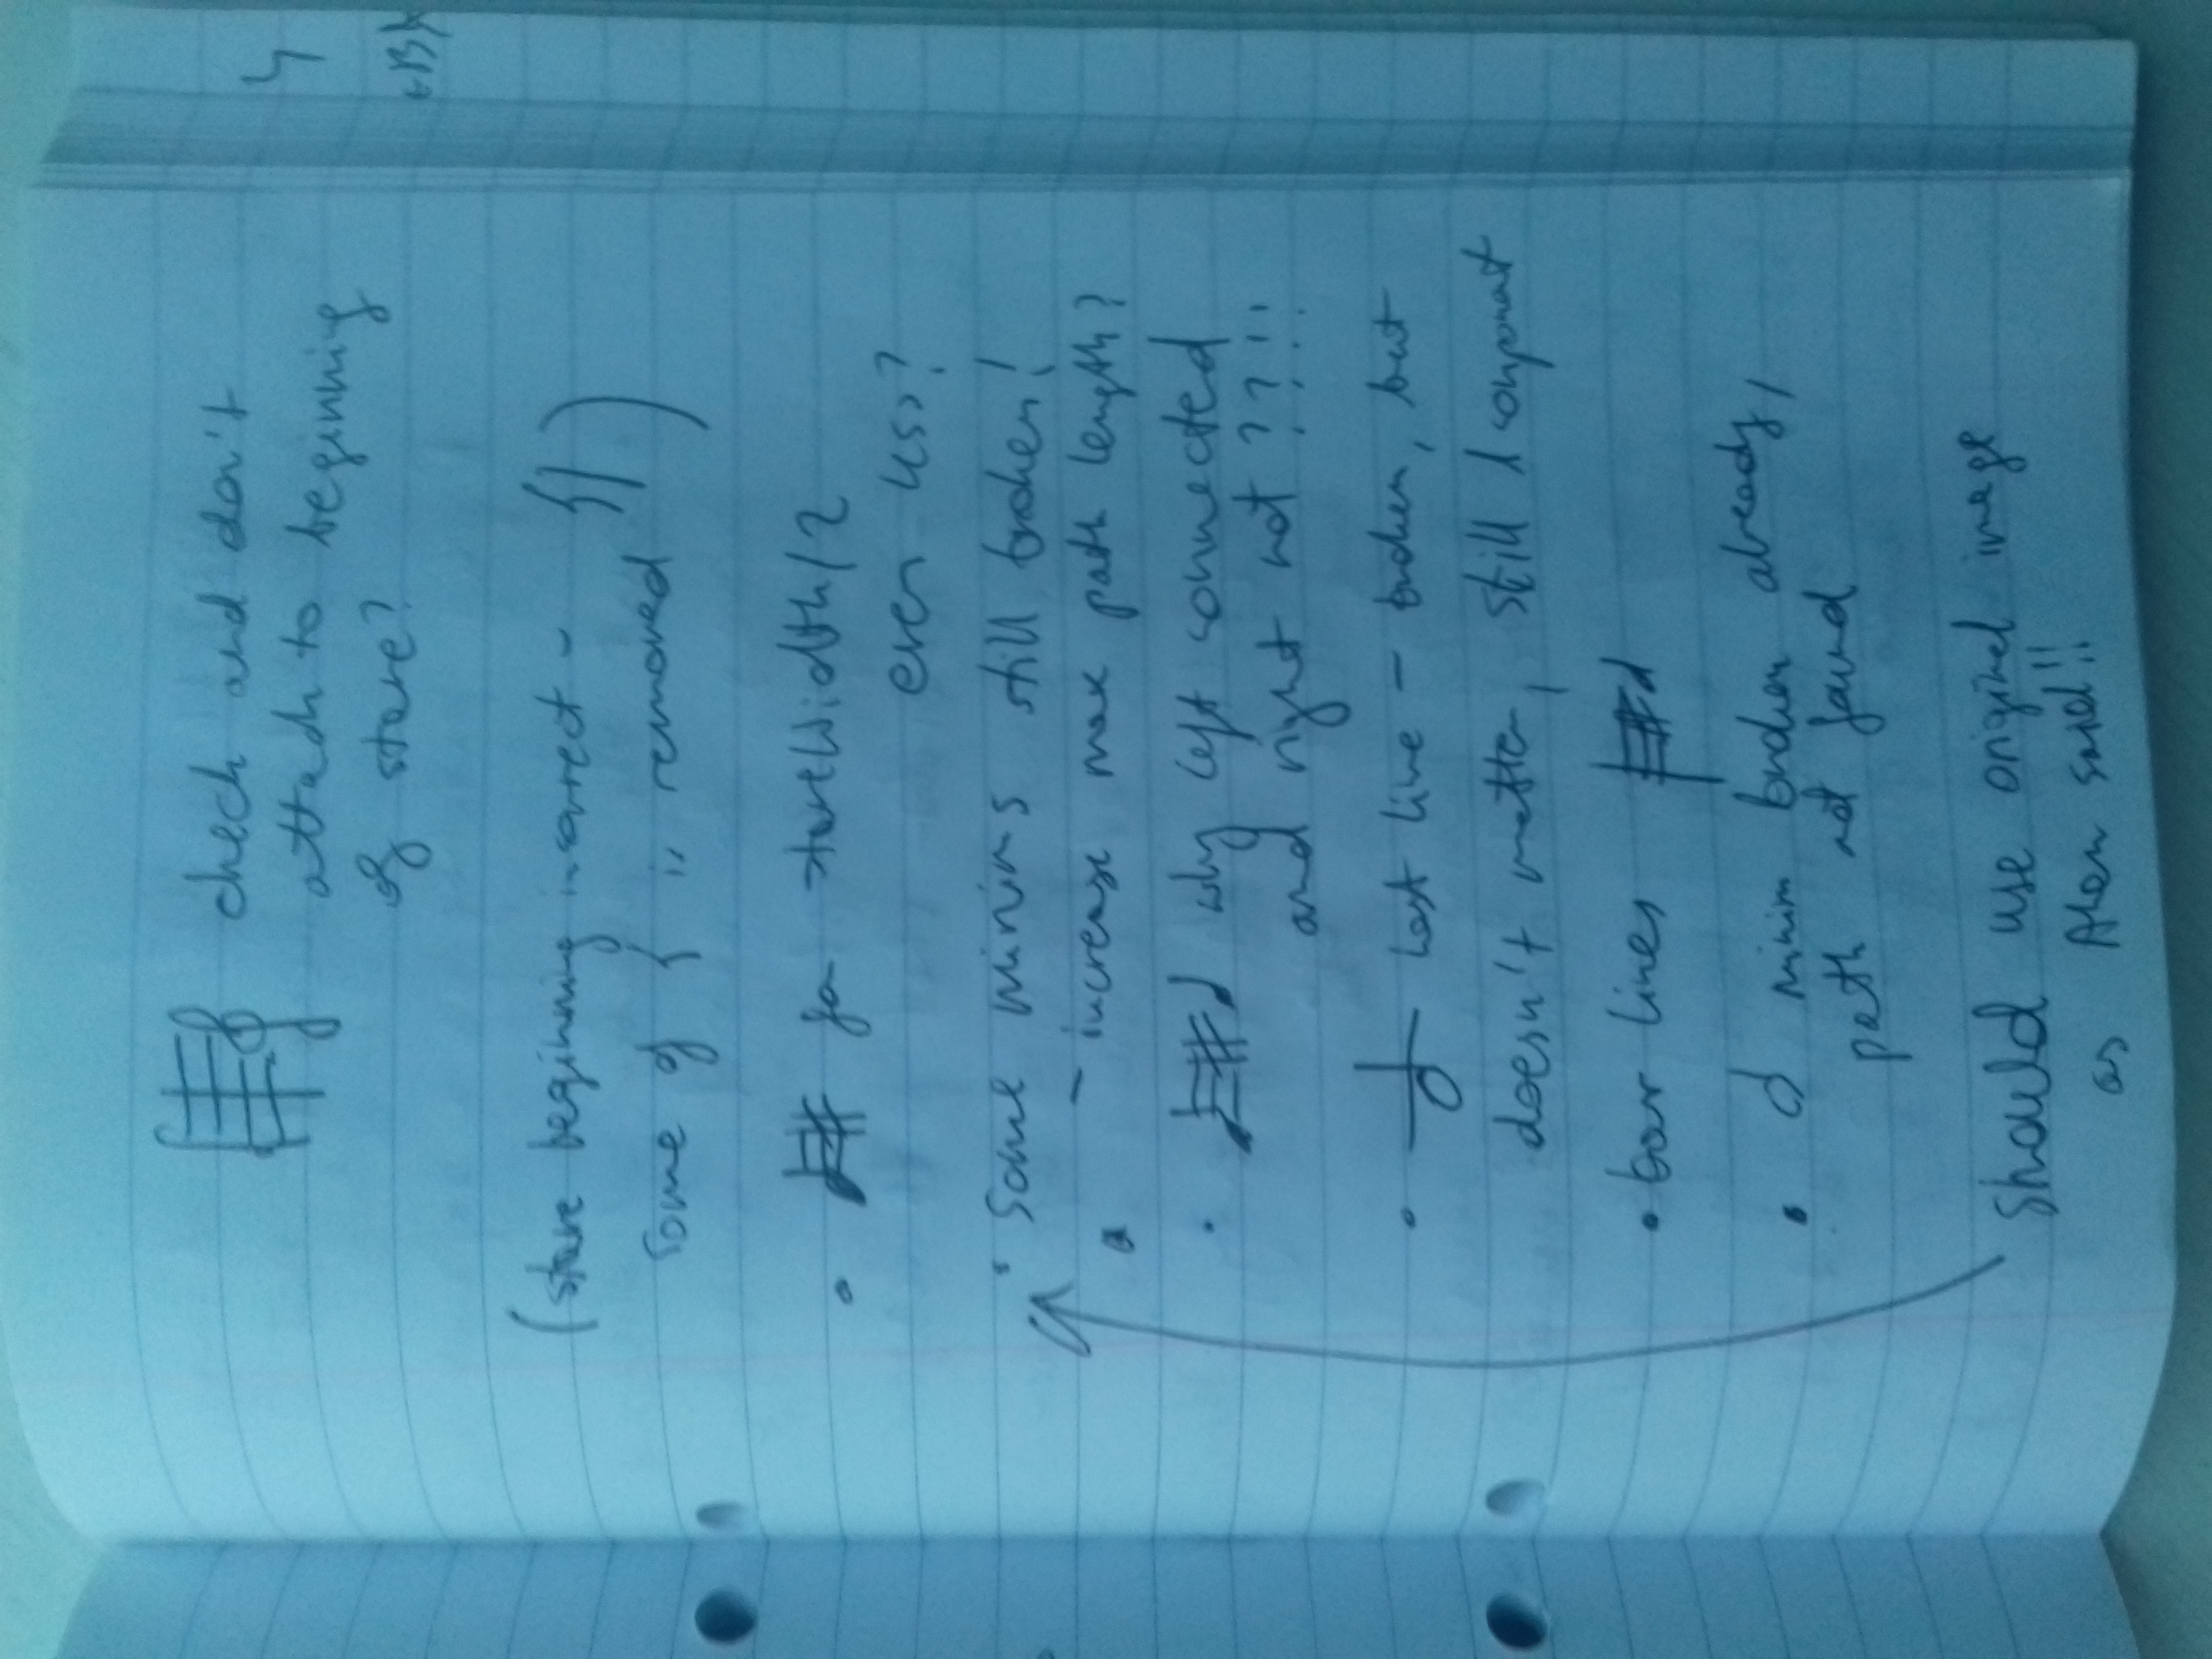 check and don't
attach to beginning
of stave?
(stave beginning incorrect - {| )
some of { is removed
• for staveWidth/2
even less?
• Some minims still broken!
- increase max path length?
• why left connected
and right not ??!!
• last line - broken, but
doesn't matter, still 1 component
• bar lines
• minim broken already,
path not found
Should use original image
as said!!